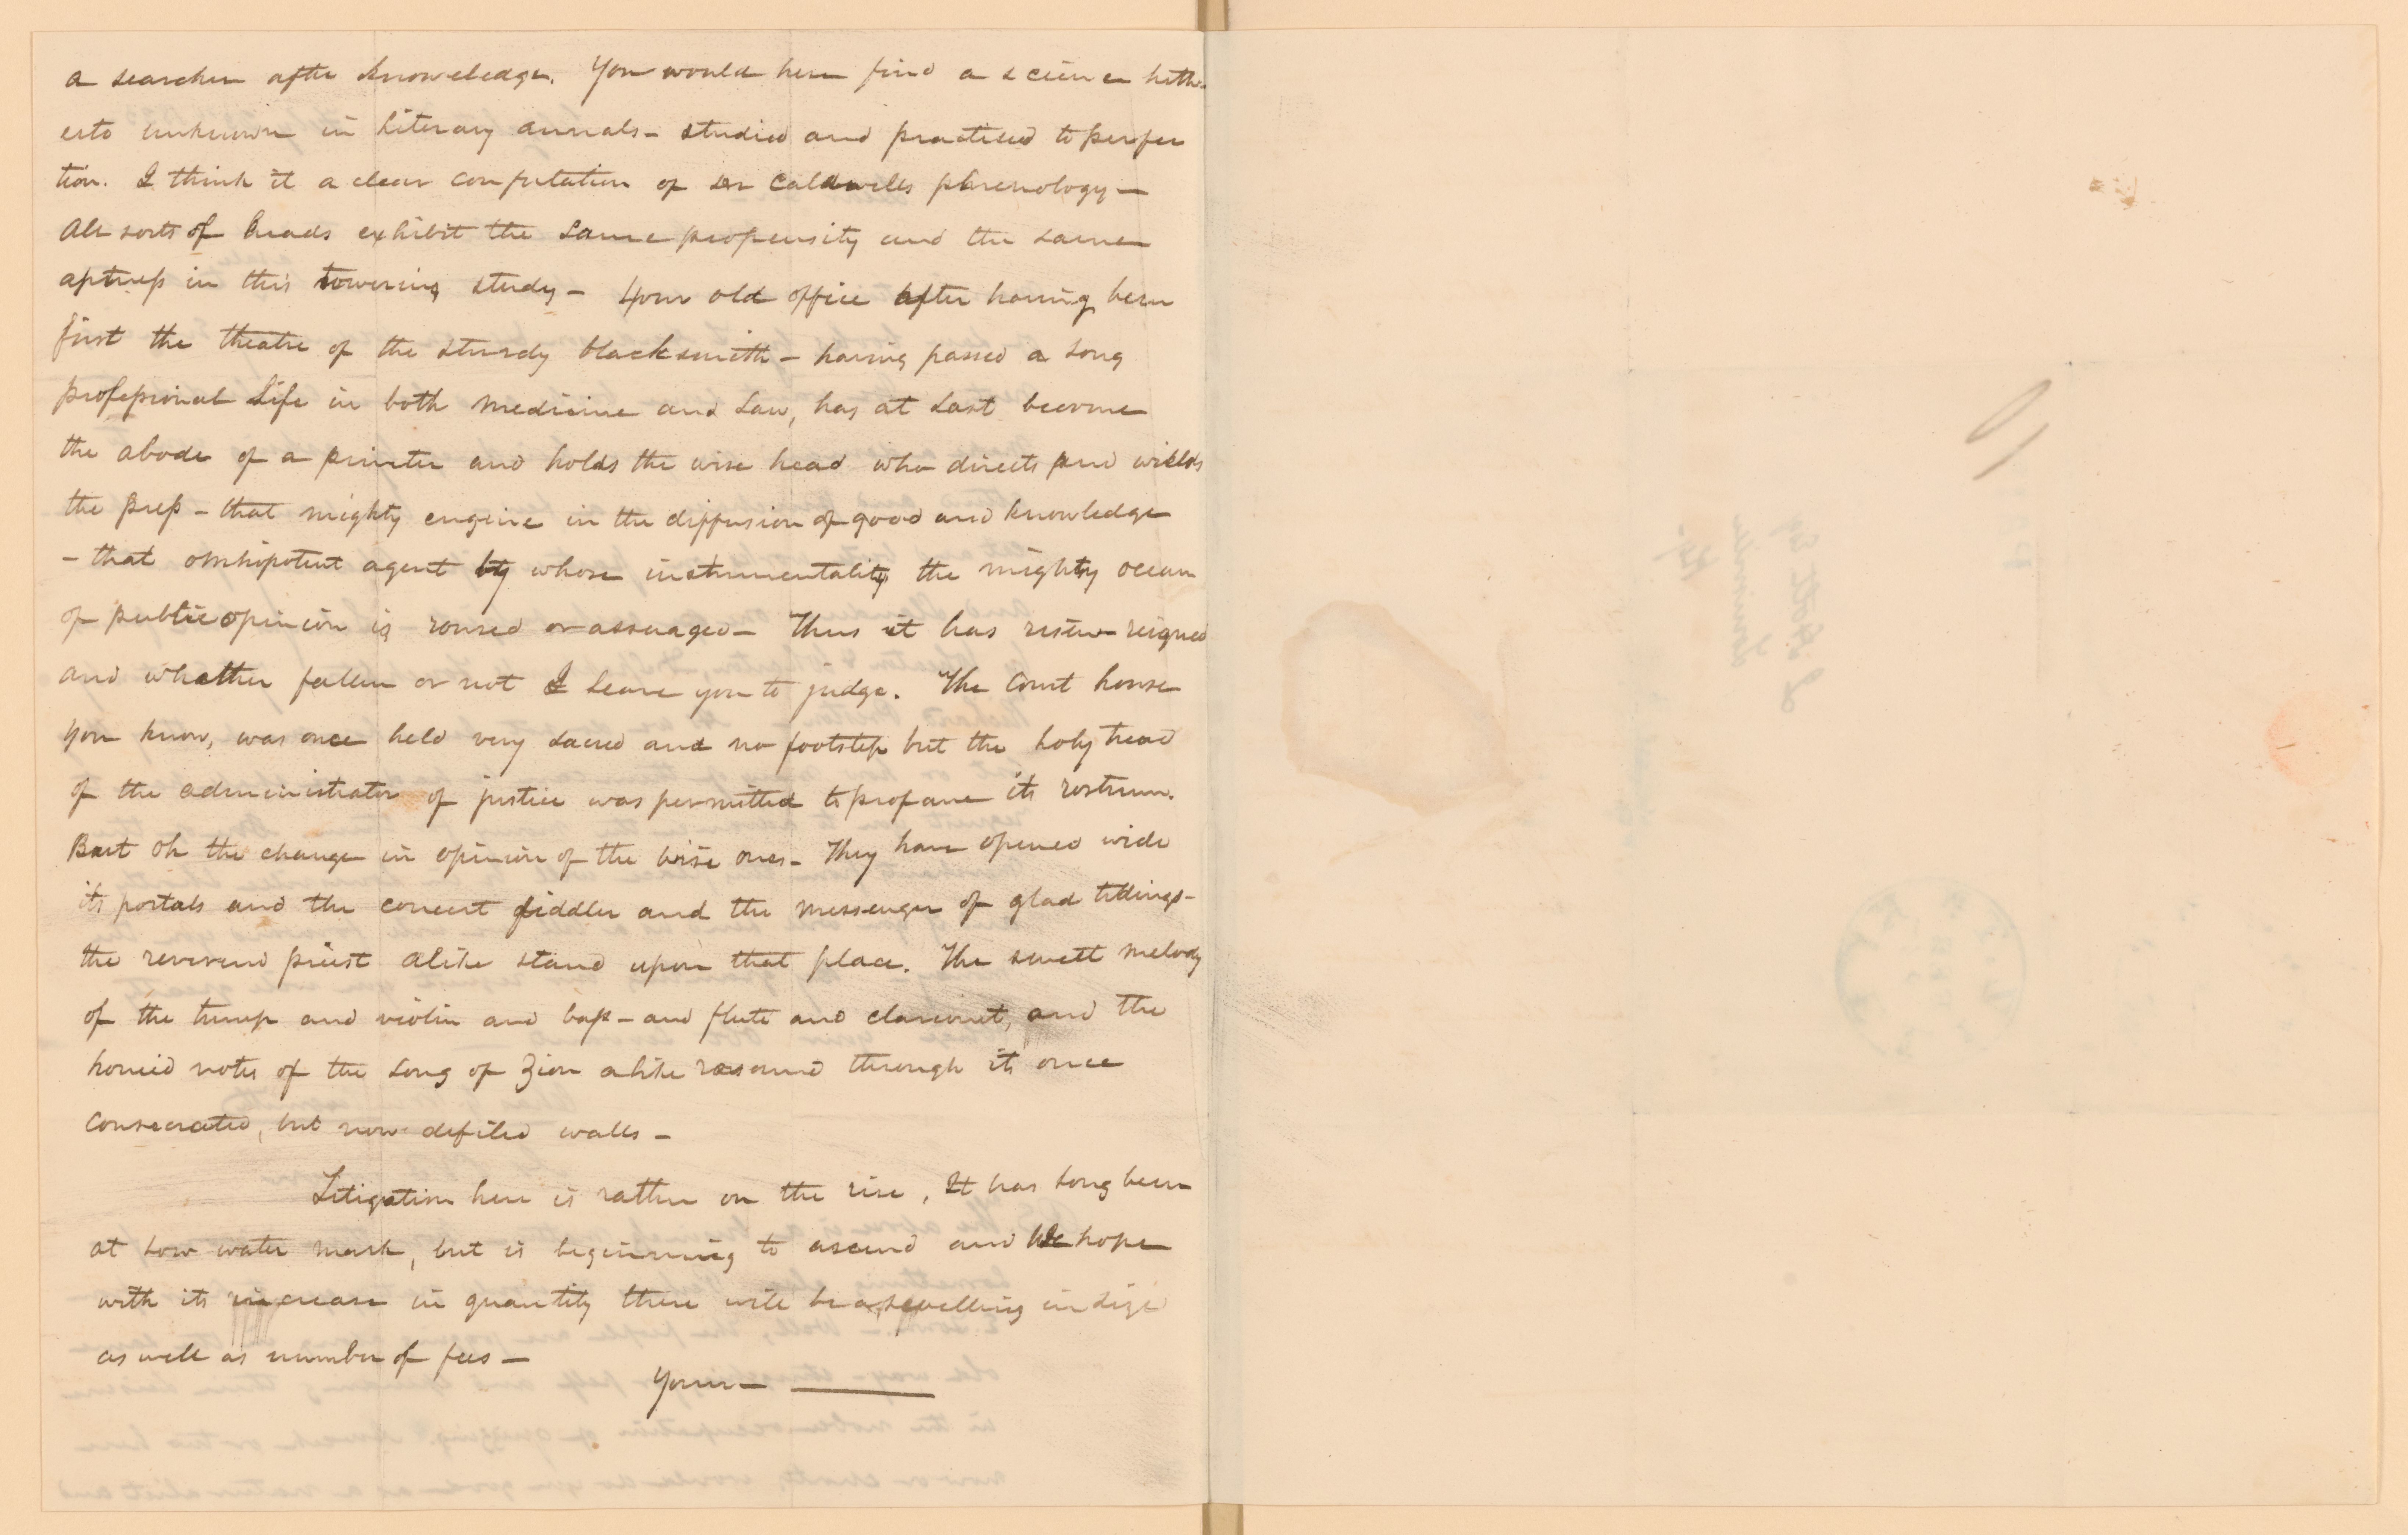 a searcher after knowledge. You would here find a science hith-
erto unknown in literary annals - studied and practised to perfec
tion. I think it a clear confutation of Dr Caldwells phrenology -
All sorts of heads exhibit the same propensity and the same
aptness in this towering study - Your old office after having been
first the theatre of the sturdy blacksmith - having passed a long
professional life in both medicine and law, has at last become
the abode of a printer and holds the wise head who directs and wields
the press - that mighty engine in the diffusion of good and knowledge
- that omnipotent agent by whose instrumentality the mighty ocean
of public opinion is roused or assuaged - Thus it has risen - reigned
and whether fallen or not I leave you to judge. The Court house
you know, was once held very sacred and no footstep but the holy tread
of the administrator of justice was permitted to profane its rostrum.
But oh the change in opinion of the wise ones - They have opened wide
its portals and the concert fiddler and the messenger of glad tidings -
the reverend priest alike stand upon that place. The swett melody
of the trump and violin and bass - and flute and clarionet, and the
honied notes of the song of Zion alike resound through its once
consecrated, but now defiled walls -
Litigation here is rather on the rise, It has long been
at low water mark, but is beginning to ascend and We hope
with its increase in quantity there will be a swelling in size
as well as number of fees -
Yours -